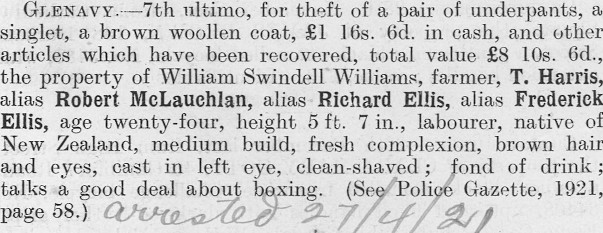 GLENAVY.—7th ultimo, for theft of a pair of underpants, a
singlet, a brown woollen coat, £1 16s. 6d. in cash, and other
articles which have been recovered, total value £8 10s. 6d.,
the property of William Swindell Williams, farmer, T. Harris,
alias Robert McLauchlan, alias Richard Ellis, alias Frederick
Ellis, age twenty-four, height 5 ft. 7 in., labourer, native of
New Zealand, medium build, fresh complexion, brown hair
and eyes, cast in left eye, clean-shaved ; fond of drink ;
talks a good deal about boxing. (See Police Gazette, 1921,
page 58.) arrested 27/4/21